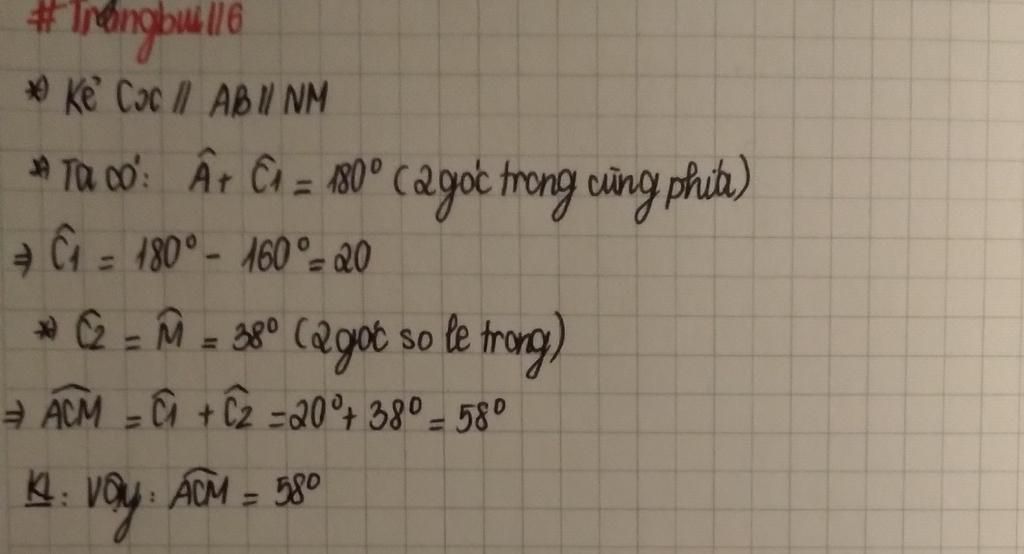 #Trangbui116
*) Kẻ Cx // AB // NM
*) Ta có: Â + Ĉ1 = 180° (2 góc trong cùng phía)
⇒ Ĉ1 = 180° - 160° = 20
*) Ĉ2 = M̂ = 38° (2 góc so le trong)
⇒ ACM̂ = Ĉ1 + Ĉ2 = 20° + 38° = 58°
Kl: Vậy: ACM̂ = 58°